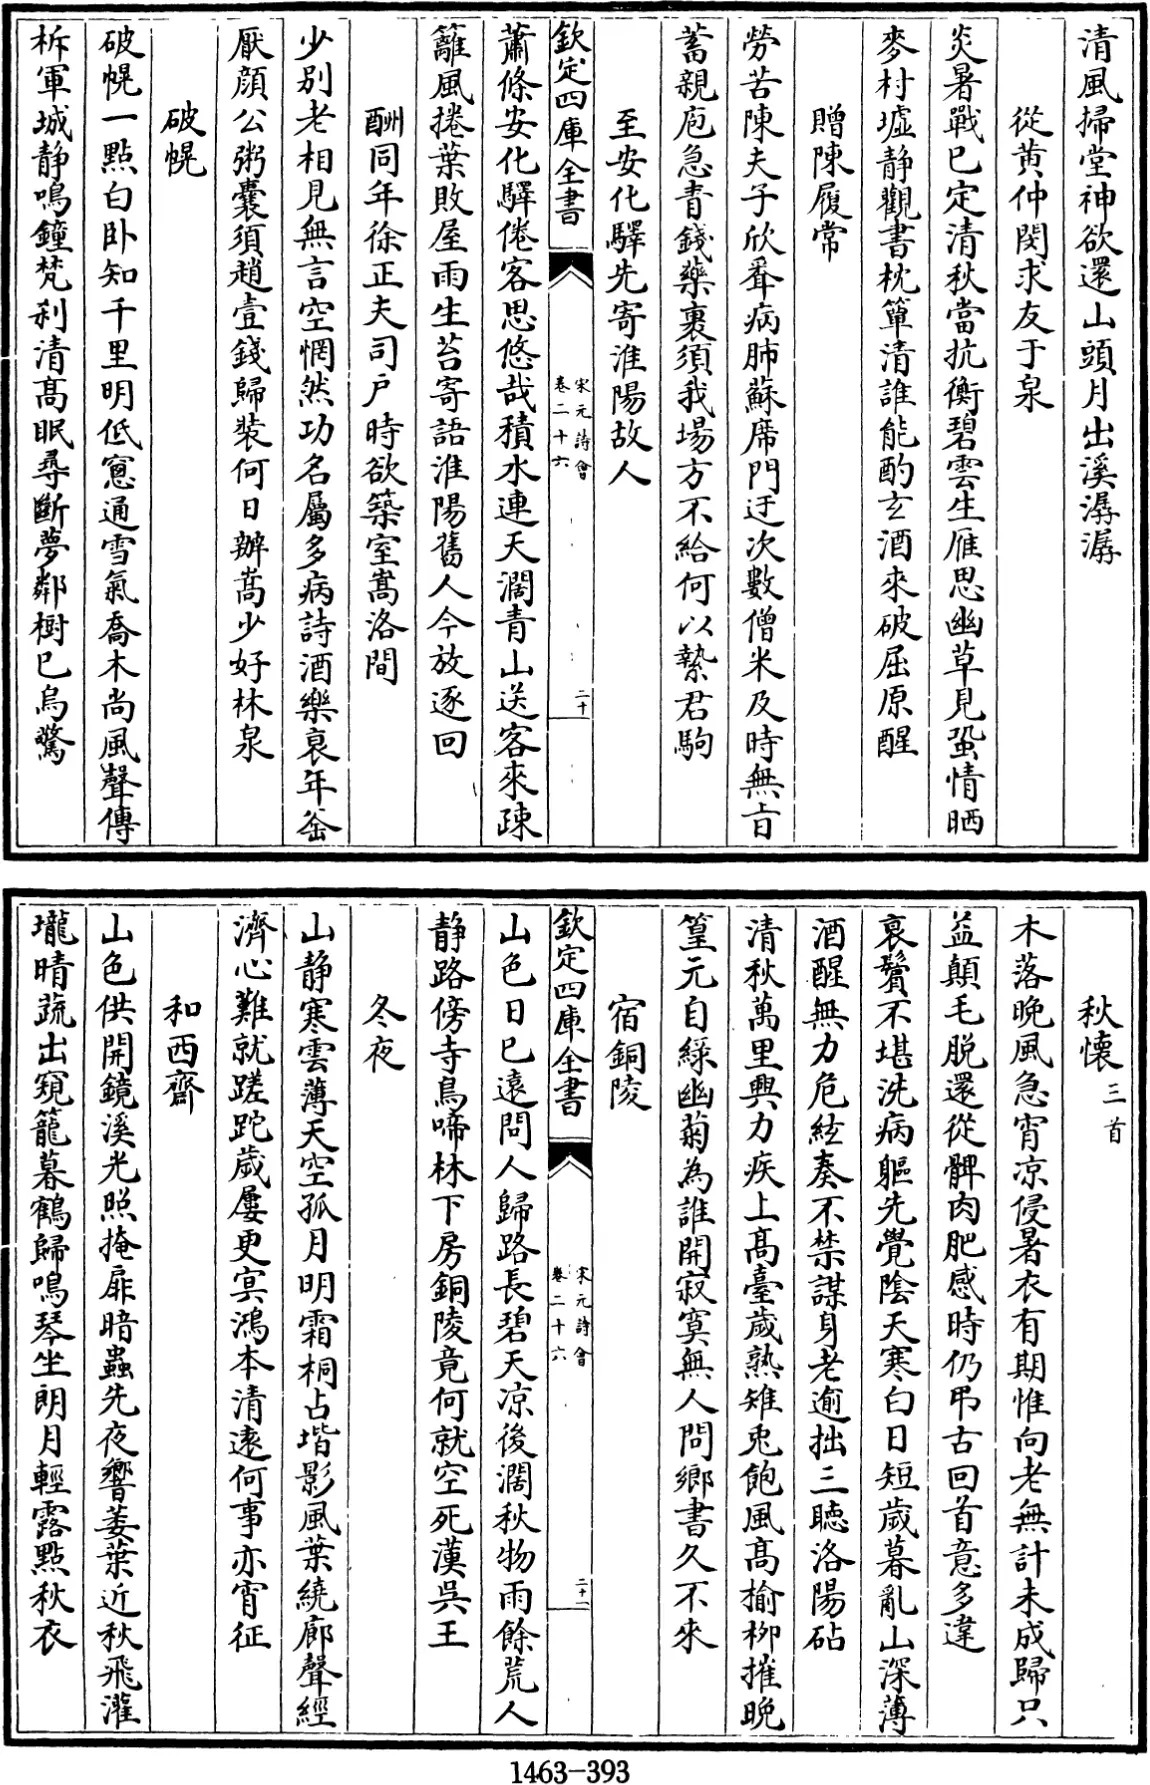 清風掃堂神欲還山頭月出溪潺潺
從黄仲閔求友于泉
炎暑戰已定清秋當抗衡碧雲生雁思幽草見蛩情晒
麥村墟静觀書枕簟清誰能酌玄酒來破屈原醒
贈陳履常
勞苦陳夫子欣聞病肺蘇席門迂次數僧米及時無旨
蓄親庖急青錢藥裹須我場方不給何以縶君駒
至安化驛先寄淮陽故人
欽定四庫全書
宋元詩會
卷二十六
二十
蕭條安化驛倦客思悠哉積水連天濶青山送客來疎
籬風捲葉敗屋雨生苔寄語淮陽舊人今放逐回
酬同年徐正夫司户時欲築室嵩洛間
少别老相見無言空惘然功名屬多病詩酒樂衰年釜
厭顔公粥囊須趙壹錢歸裝何日辦嵩少好林泉
破幌
破幌一點白卧知千里明低窻通雪氣喬木尚風聲傳
柝軍城静鳴鐘梵刹清髙眠尋斷夢鄰樹已烏驚
秋懐三首
木落晚風急宵凉侵暑衣有期惟向老無計未成歸只
益顛毛脱還從髀肉肥感時仍弔古回首意多違
衰鬢不堪洗病軀先覺陰天寒白日短歲暮亂山深薄
酒醒無力危絃奏不禁謀身老逾拙三聴洛陽砧
清秋萬里興力疾上髙臺歲熟雉兎飽風髙榆柳摧晚
篁元自緑幽菊為誰開寂寞無人問鄉書久不來
宿銅陵
欽定四庫全書
宋元詩會
卷二十六
二十一
山色日已遠問人歸路長碧天凉後濶秋物雨餘荒人
静路傍寺鳥啼林下房銅陵竟何就空死漢吳王
冬夜
山静寒雲薄天空孤月明霜桐占堦影風葉繞廊聲經
濟心難就蹉跎歲屢更冥鴻本清逺何事亦宵征
和西齋
山色供開鏡溪光照掩扉暗蟲先夜響萎葉近秋飛灌
壠晴蔬出窺籠暮鶴歸鳴琴坐朗月輕露點秋衣
1463-393